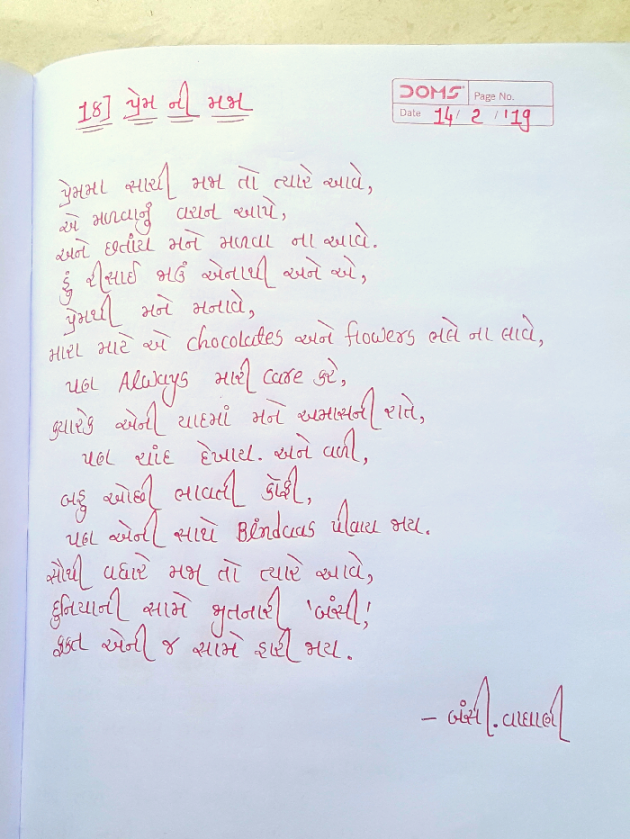 18] પ્રેમ ની મજા
DOMS Page No.
Date 14 / 2 / '19
પ્રેમમા સાચી મજા તો ત્યારે આવે,
એ મળવાનું વચન આપે,
અને છતાંય મને મળવા ના આવે.
હું રીસાઈ જાઉં એનાથી અને એ,
પ્રેમથી મને મનાવે,
મારા માટે એ chocolates અને flowers ભલે ના લાવે,
પણ Always મારી care કરે,
ક્યારેક એની યાદમાં મને અમાસની રાતે,
પણ ચાંદ દેખાય. અને વળી,
બહુ ઓછી ભાવતી કૉફી,
પણ એની સાથે Bindaas પીવાય જાય.
સૌથી વધારે મજા તો ત્યારે આવે,
દુનિયાની સામે જીતનારી 'બંસી',
ફક્ત એની જ સામે હારી જાય.
- બંસી. વાઘાણી